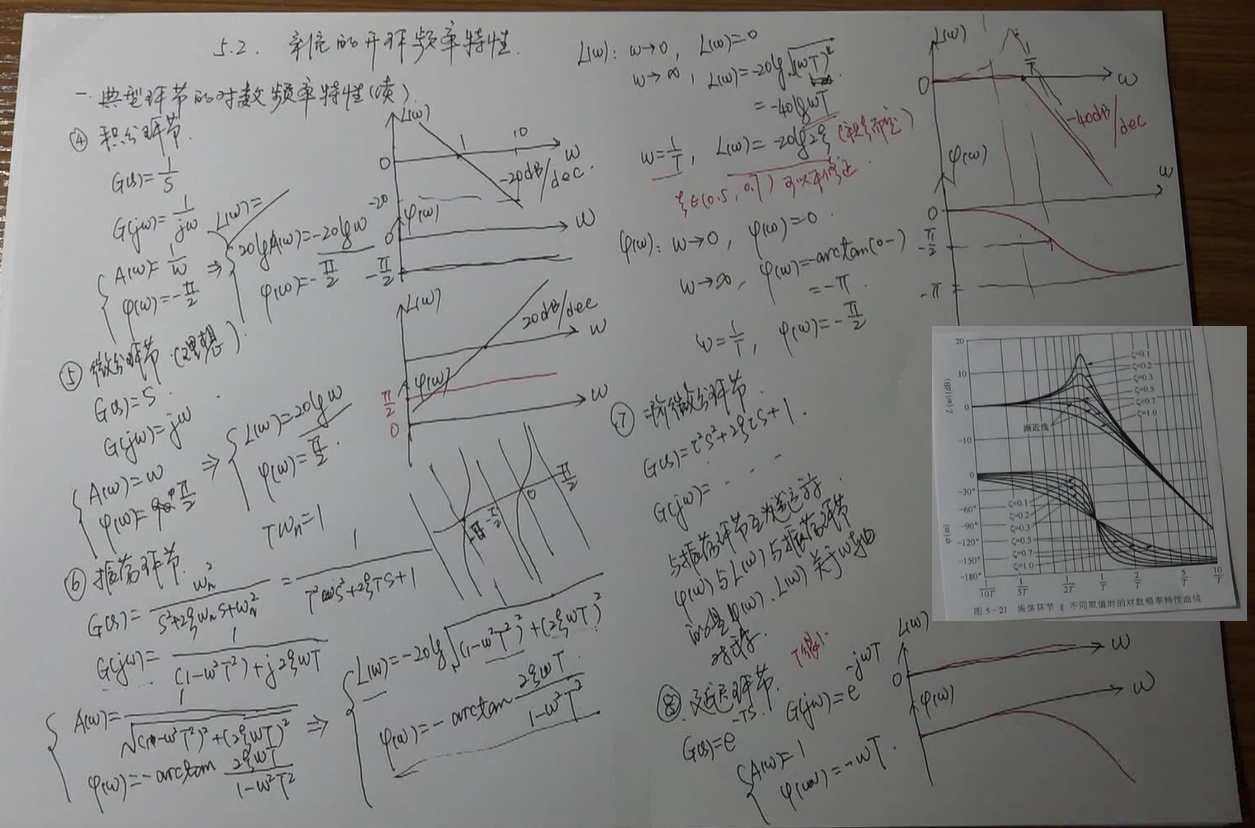 5.2. 系统的开环频率特性.
一. 典型环节的对数频率特性(续)
④ 积分环节.
G(s)=1/S
G(jω)=1/jω
A(ω)=1/ω
φ(ω)=-π/2
⇒
L(ω)=
20lgA(ω)=-20lgω
φ(ω)=-π/2
L(ω)
0
1
10
ω
-20dB/dec.
-20
φ(ω)
0
ω
-π/2
⑤ 微分环节.(理想).
G(s)=S.
G(jω)=jω
A(ω)=ω
φ(ω)=π/2
⇒
L(ω)=20lgω
φ(ω)=π/2.
L(ω)
20dB/dec
ω
φ(ω)
π/2
0
ω
⑥ 振荡环节.
Tωn=1
G(s)=ωn²/(S²+2ξωnS+ωn²)=1/(T²S²+2ξTS+1)
G(jω)=1/((1-ω²T²)+j2ξωT)
A(ω)=1/√((1-ω²T²)²+(2ξωT)²)
φ(ω)=-arctan 2ξωT/(1-ω²T²)
⇒
L(ω)=-20lg√((1-ω²T²)²+(2ξωT)²)
φ(ω)=-arctan 2ξωT/(1-ω²T²)
-π
-π/2
0
π/2
L(ω): ω→0, L(ω)=0
ω→∞, L(ω)=-20lg√(ωT)⁴
=-40lgωT
ω=1/T, L(ω)=-20lg2ξ (视ξ而定)
ξ∈(0.5, 0.7) 可以不修正.
φ(ω): ω→0, φ(ω)=0.
ω→∞, φ(ω)=-arctan(0-)
=-π.
ω=1/T, φ(ω)=-π/2
L(ω)
0
1/T
ω
-40dB/dec
φ(ω)
0
ω
-π/2
-π
⑦ 二阶微分环节.
G(s)=τ²S²+2ξτS+1.
G(jω)= . . .
与振荡环节互为逆运算
φ(ω)与L(ω)与振荡环节
的φ(ω)、L(ω)关于ω轴
对称.
20
10
0
-10
L(ω)(dB)
ζ=0.1
ζ=0.2
ζ=0.3
ζ=0.5
ζ=0.7
ζ=1.0
渐近线
0
-30°
-60°
-90°
-120°
-150°
-180°
φ(ω)
ζ=0.1
ζ=0.2
ζ=0.3
ζ=0.5
ζ=0.7
ζ=1.0
1/10T 1/5T 1/2T 1/T 2/T 5/T 10/T
图 5-21 振荡环节 ξ 不同取值时的对数频率特性曲线
⑧ 延迟环节.
G(s)=e^-TS.
G(jω)=e^-jωT
A(ω)=1
φ(ω)=-ωT.
L(ω)
0
ω
φ(ω)
ω